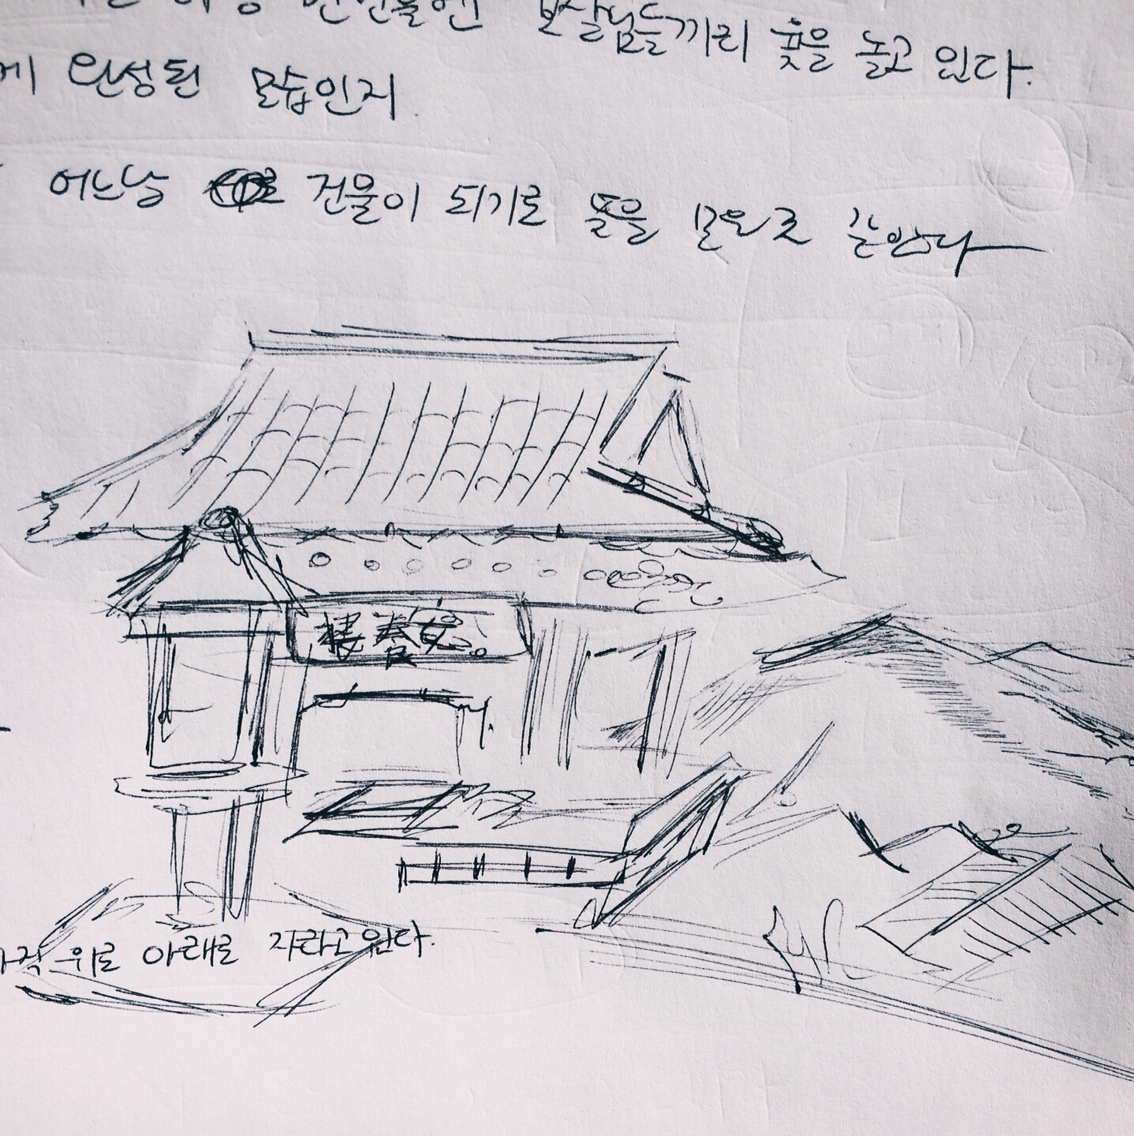 보살님들끼리 윷을 놀고 있다.
에 완성된 모습인지
어느날 건물이 되기로 뜻을 모으고 같았다
樓春宛
위로 아래로 자라고 있다.